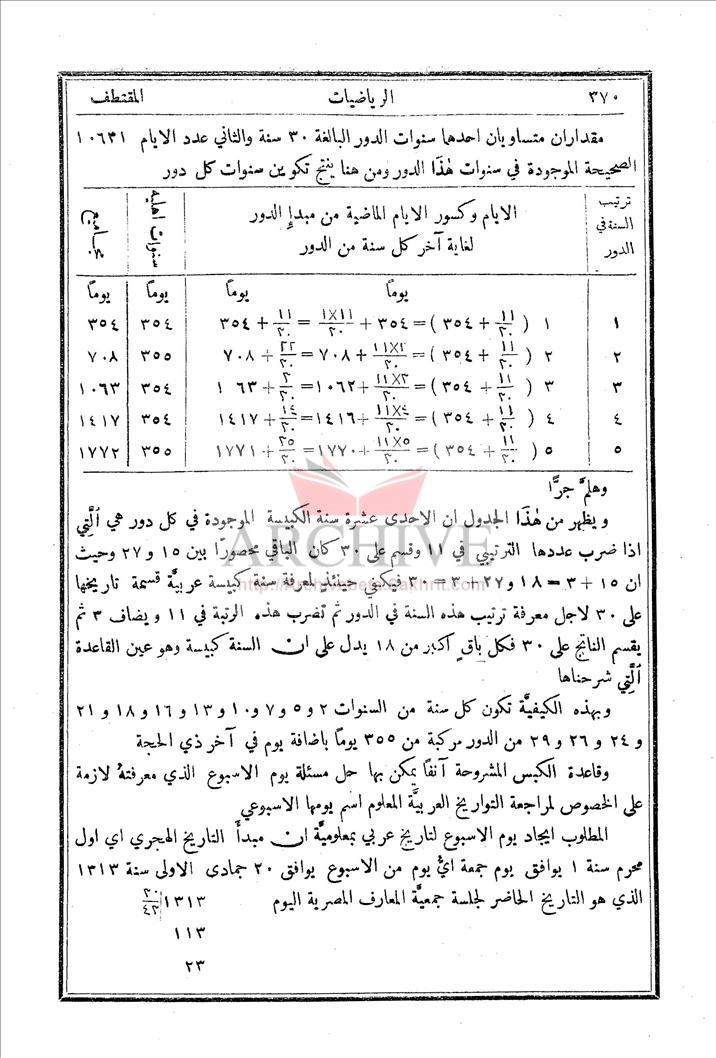 ٣٧٠ الرياضيات المقتطف
مقداران متساويان احدهما سنوات الدور البالغة ٣٠ سنة والثاني عدد الايام ١٠٦٣١
الصحيحة الموجودة في سنوات هٰذا الدور ومن هنا ينتج تكوين سنوات كل دور
ترتيب السنة في الدور | الايام وكسور الايام الماضية من مبدإ الدور لغاية آخر كل سنة من الدور | سنوات اهلية | مجاميع
يوماً يوماً يوماً يوماً
١ | ١ (١١/٣٠ + ٣٥٤) = ٣٥٤ + ١×١١/٣٠ = ١١/٣٠ + ٣٥٤ | ٣٥٤ | ٣٥٤
٢ | ٢ (١١/٣٠ + ٣٥٤) = ١١×٢/٣٠ + ٧٠٨ = ٢٢/٣٠ + ٧٠٨ | ٣٥٥ | ٧٠٨
٣ | ٣ (١١/٣٠ + ٣٥٤) = ١١×٣/٣٠ + ١٠٦٢ = ٣/٣٠ + ١٠٦٣ | ٣٥٤ | ١٠٦٣
٤ | ٤ (١١/٣٠ + ٣٥٤) = ١١×٤/٣٠ + ١٤١٦ = ١٤/٣٠ + ١٤١٧ | ٣٥٤ | ١٤١٧
٥ | ٥ (١١/٣٠ + ٣٥٤) = ١١×٥/٣٠ + ١٧٧٠ = ٢٥/٣٠ + ١٧٧١ | ٣٥٥ | ١٧٧٢
وهلمَّ جرًّا
و يظهر من هٰذا الجدول ان الاحدى عشرة سنة الكبيسة الموجودة في كل دور هي ٱلَّتي
اذا ضرب عددها الترتيبي في ١١ وقسم على ٣٠ كان الباقي محصورًا بين ١٥ و ٢٧ وحيث
ان ١٥ + ٣ = ١٨ و ٢٧ + ٣ = ٣٠ فيكفي حينئذٍ لمعرفة سنة كبيسة عربيَّة قسمة تاريخها
على ٣٠ لاجل معرفة ترتيب هذه السنة في الدور ثم تضرب هذه الرتبة في ١١ و يضاف ٣ ثم
يقسم الناتج على ٣٠ فكل باقٍ اكبر من ١٨ يدل على ان السنة كبيسة وهو عين القاعدة
ٱلَّتي شرحناها
وبهذه الكيفيَّة تكون كل سنة من السنوات ٢ و ٥ و ٧ و ١٠ و ١٣ و ١٦ و ١٨ و ٢١
و ٢٤ و ٢٦ و ٢٩ من الدور مركبة من ٣٥٥ يوماً باضافة يوم في آخر ذي الحجة
وقاعدة الكبس المشروحة آنفًا يمكن بها حل مسئلة يوم الاسبوع الذي معرفتهُ لازمة
على الخصوص لمراجعة التواريخ العربيَّة المعلوم اسم يومها الاسبوعي
المطلوب ايجاد يوم الاسبوع لتاريخ عربي بمعلوميَّة ان مبدأَ التاريخ الهجري اي اول
محرم سنة ١ يوافق يوم جمعة ايُّ يوم من الاسبوع يوافق ٢٠ جمادى الاولى سنة ١٣١٣
الذي هو التاريخ الحاضر لجلسة جمعيَّة المعارف المصرية اليوم ١٣١٣ | ٣٠/٤٣
١١٣
٢٣
ARCHIVE